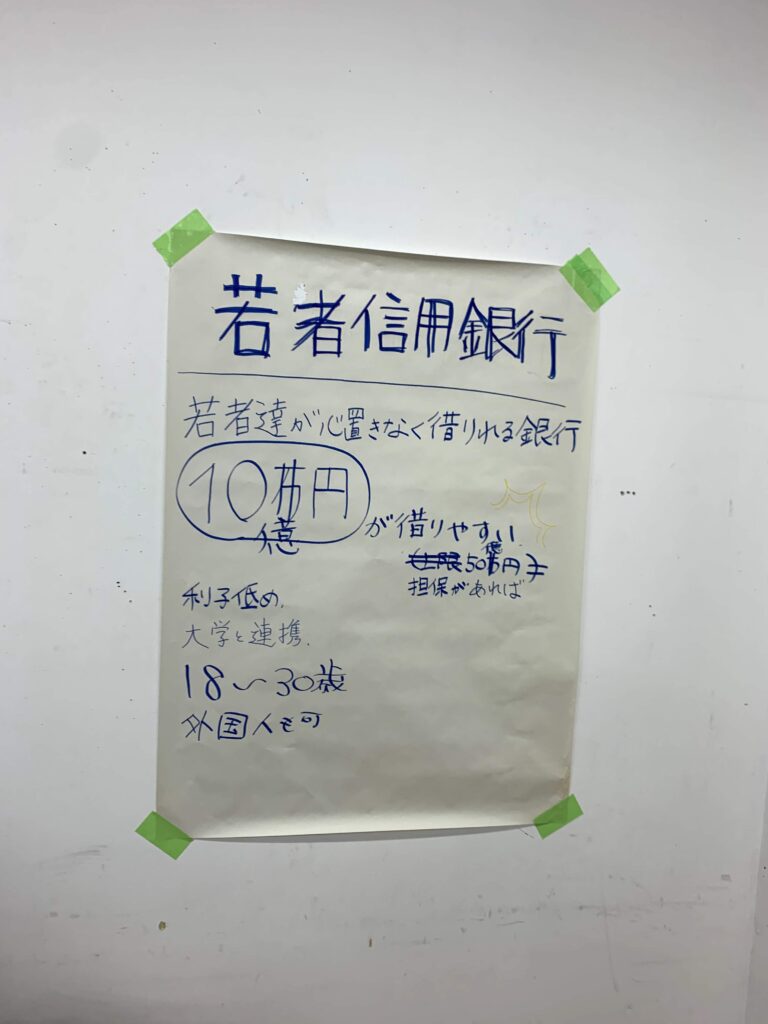 若者信用銀行
若者達が心置きなく借りれる銀行
10万円
億
が借りやすい
上限50億円
担保があれば
利子低め.
大学と連携.
18〜30歳
外国人も可